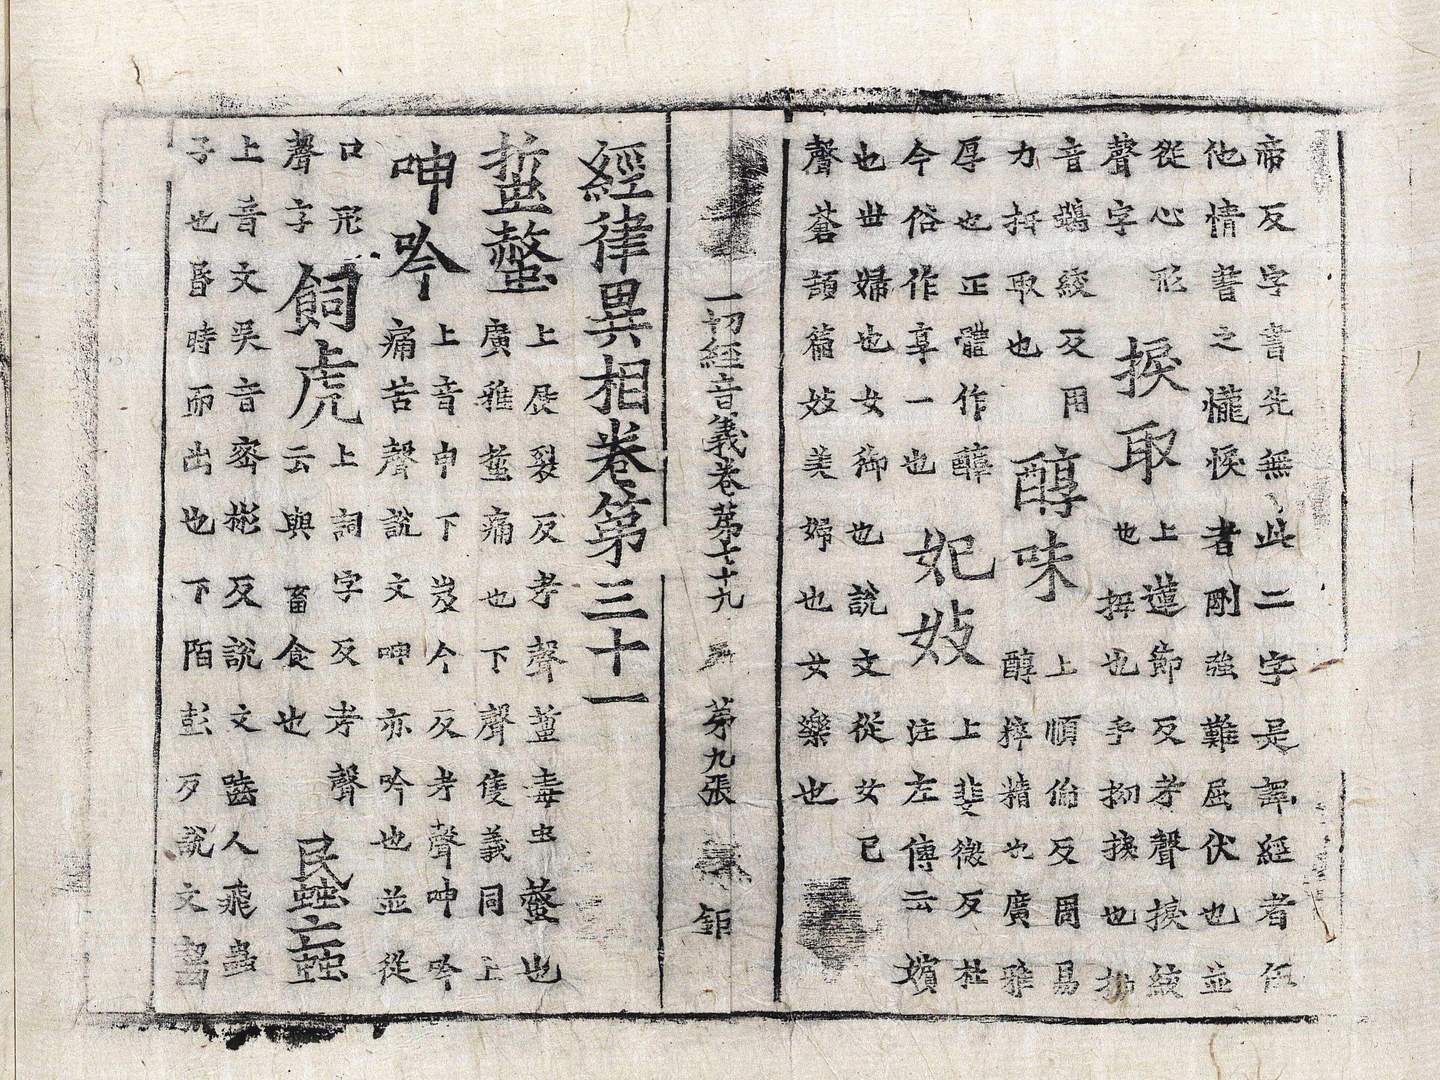 帝反字書先無此二字是譯經者任
他情書之㦬悷者剛強難屈伏也並
從心形捩取上蓮節反考聲捩紋
聲字也捩也手拗捩也
音鵶絞反用醇味上順倫反周易
力折取也醇粹精也廣雅
厚也正體作醇妃妓上斐微反杜
今俗作享一也注左傳云嬪
也世婦也女御也說文從女己
聲蒼頡篇妓美婦也女樂也
一切經音義卷第七十九
第九張
鉅
經律異相卷第三十一
蜇螫上展裂反考聲蠆毒虫螫也
廣雅蜇痛也下聲隻義同上
呻吟上音申下岌今反考聲呻吟
痛苦聲說文呻亦吟也並從
口形飼虎上詞字反考聲
聲字云與畜食也民䖟
上音文吳音密彬反說文齧人飛蟲
子也昏時而出也下陌彭反說文